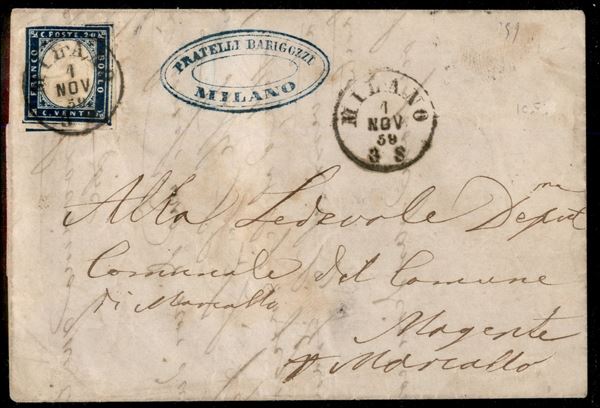 C. POSTE. 20
FRANCO
BOLLO
C. VENTI
1
NOV
59
3
FRATELLI BARIGOZZI
MILANO
MILANO
1
NOV
59
3 S
Alla Lodevole Deputne
Comunale del Comune
di Marcallo
Magenta
Marcallo